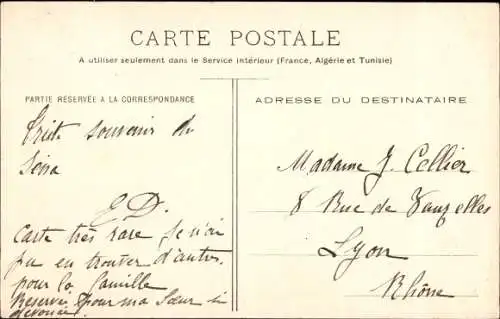 CARTE POSTALE
A utiliser seulement dans le Service intérieur (France, Algérie et Tunisie)
PARTIE RÉSERVÉE A LA CORRESPONDANCE
Triste souvenir du
E D.
Carte très rare je n'ai
pu en trouver d'autres
pour la famille
Réservée pour ma Sœur si
dévouée
ADRESSE DU DESTINATAIRE
Madame J. Cellier
8 Rue de Vauzelles
Lyon
Rhône